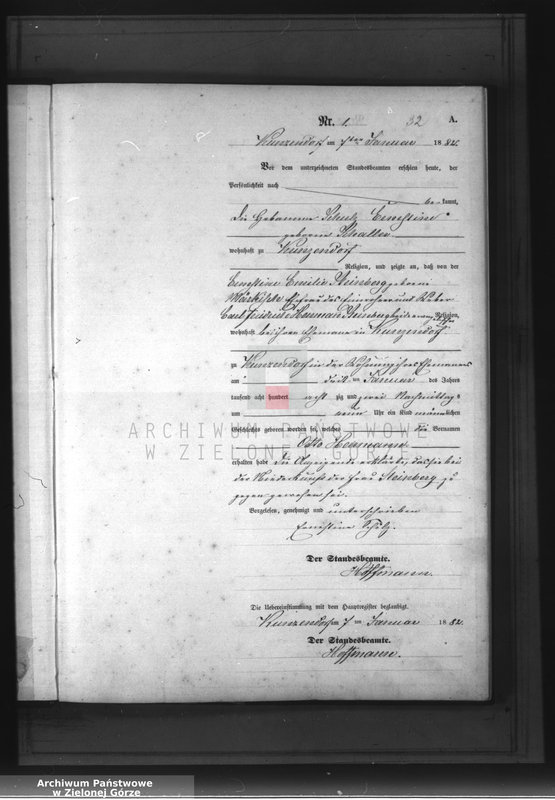 Nr. 1. 32 A.
Kunzendorf am 7ten Januar 1882.
Vor dem unterzeichneten Standesbeamten erschien heute, der
Persönlichkeit nach
be kannt,
die Hebamme Schulz Ernestine
geborene
wohnhaft zu Kunzendorf
Religion, und zeigte an, daß von der
Ernestine Emilie Steinberg geborene
Ehefrau des Einwohners und Weber
Carl Heinrich Herman Steinberg beide evang. Religion,
wohnhaft bei ihrem Ehemann in Kunzendorf
zu Kunzendorf in der Wohnung ihres Ehemannes
am ten Januar des Jahres
tausend acht hundert acht zig und zwei Nachmittags
um neun Uhr ein Kind männlichen
Geschlechts geboren worden sei, welches die Vornamen
Otto Hermann
erhalten habe Die Anzeigende erklärte, dass sie bei
der Niederkunft der Frau Steinberg zu
gegen gewesen sei.
Vorgelesen, genehmigt und unterschrieben
Ernestine Schulz.
Der Standesbeamte.
Hoffmann.
Die Uebereinstimmung mit dem Hauptregister beglaubigt.
Kunzendorf am 7 ten Januar 1882.
Der Standesbeamte.
Hoffmann.
ARCHIWUM PAŃSTWOWE
W ZIELONEJ GÓRZE
Archiwum Państwowe
w Zielonej Górze